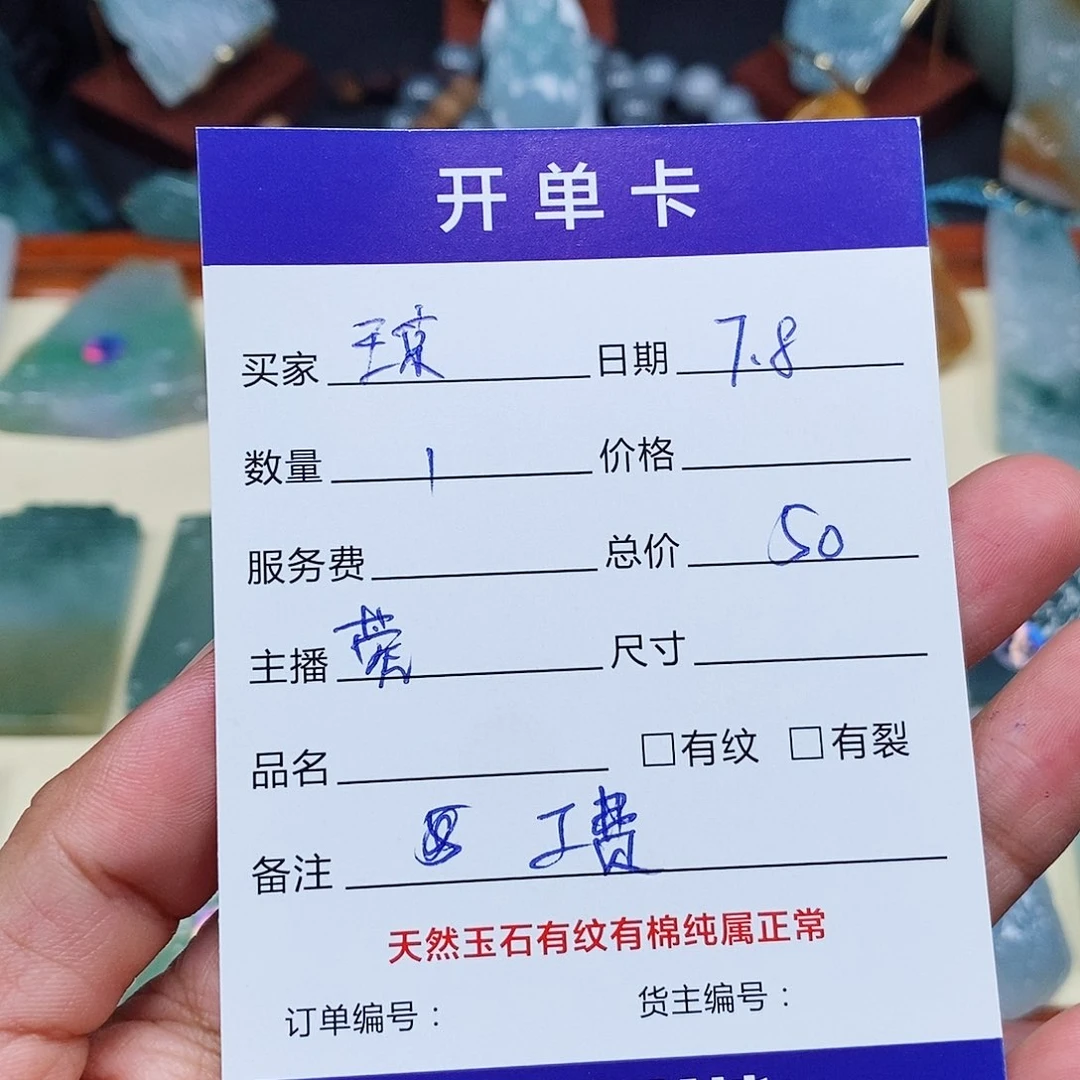 开单卡
买家 王京 日期 7.8
数量 1 价格
服务费 总价 50
主播 莹 尺寸
品名 □有纹 □有裂
备注 工费
天然玉石有纹有棉纯属正常
订单编号： 货主编号：